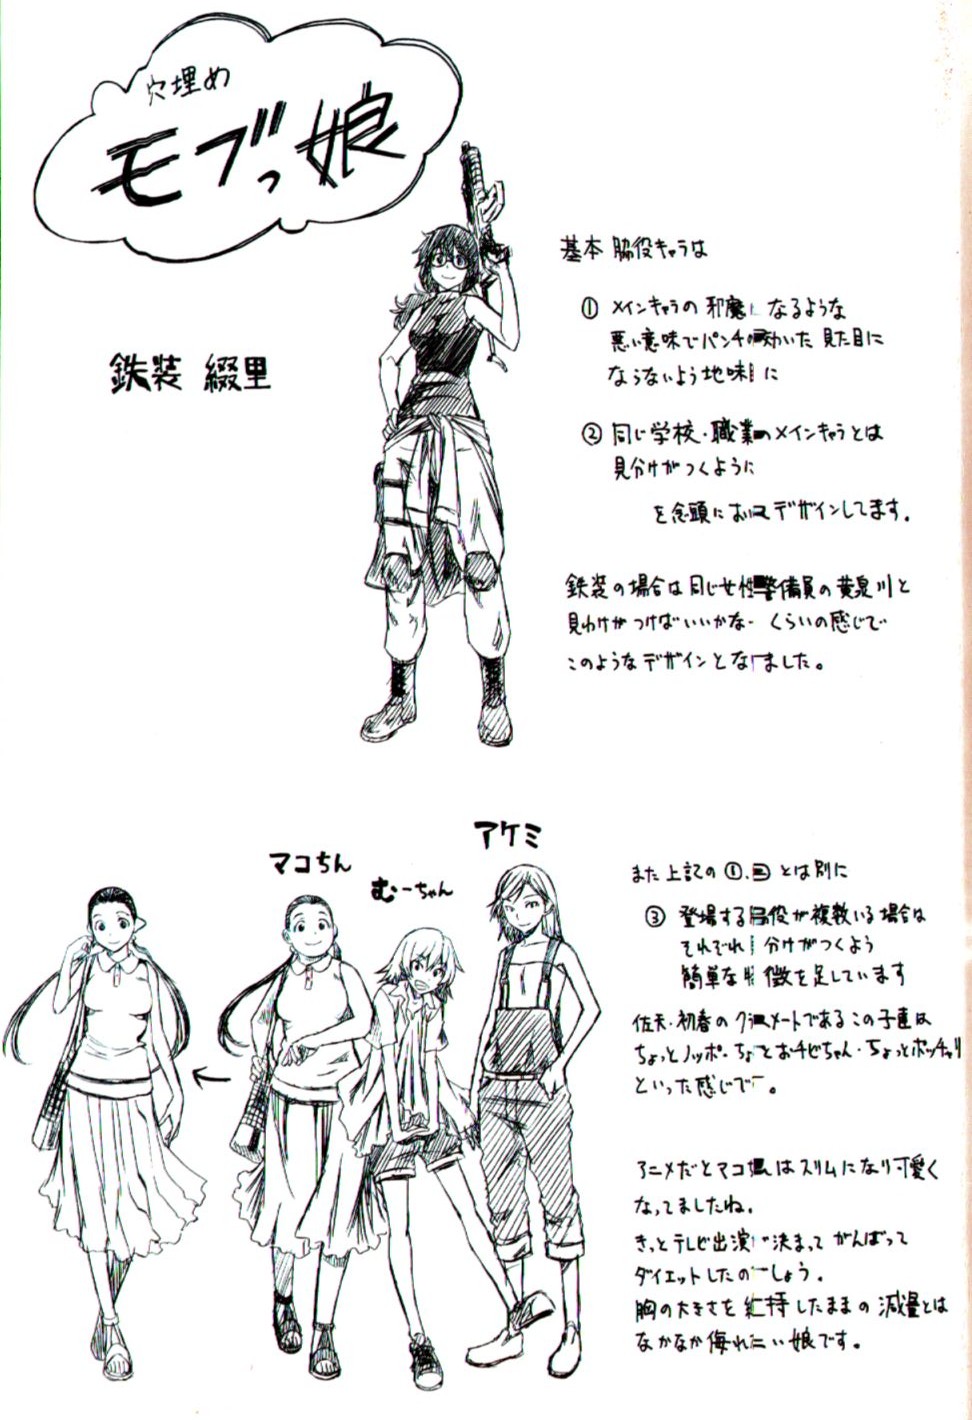 穴埋め
モブっ娘
鉄装 綴里
基本 脇役キャラは
① メインキャラの 邪魔になるような
悪い意味でパンチの効いた 見た目に
ならないよう地味に
② 同じ学校・職業のメインキャラとは
見分けがつくように
を念頭においてデザインしてます。
鉄装の場合は同じ女性警備員の黄泉川と
見わけがつけばいいかなー くらいの感じで
このようなデザインとなりました。
アケミ
マコちん
むーちゃん
また上記の①、②とは別に
③ 登場する脇役が複数いる場合は
それぞれ見分けがつくよう
簡単な特徴を足しています
佐天・初春のクラスメートであるこの子達は
ちょっとノッポ・ちょっとおチビちゃん・ちょっとポッチャリ
といった感じで。
アニメだとマコちんはスリムになり可愛く
なってましたね。
きっとテレビ出演が決まって がんばって
ダイエットしたのでしょう。
胸の大きさを維持したままの 減量とは
なかなか侮れない娘です。